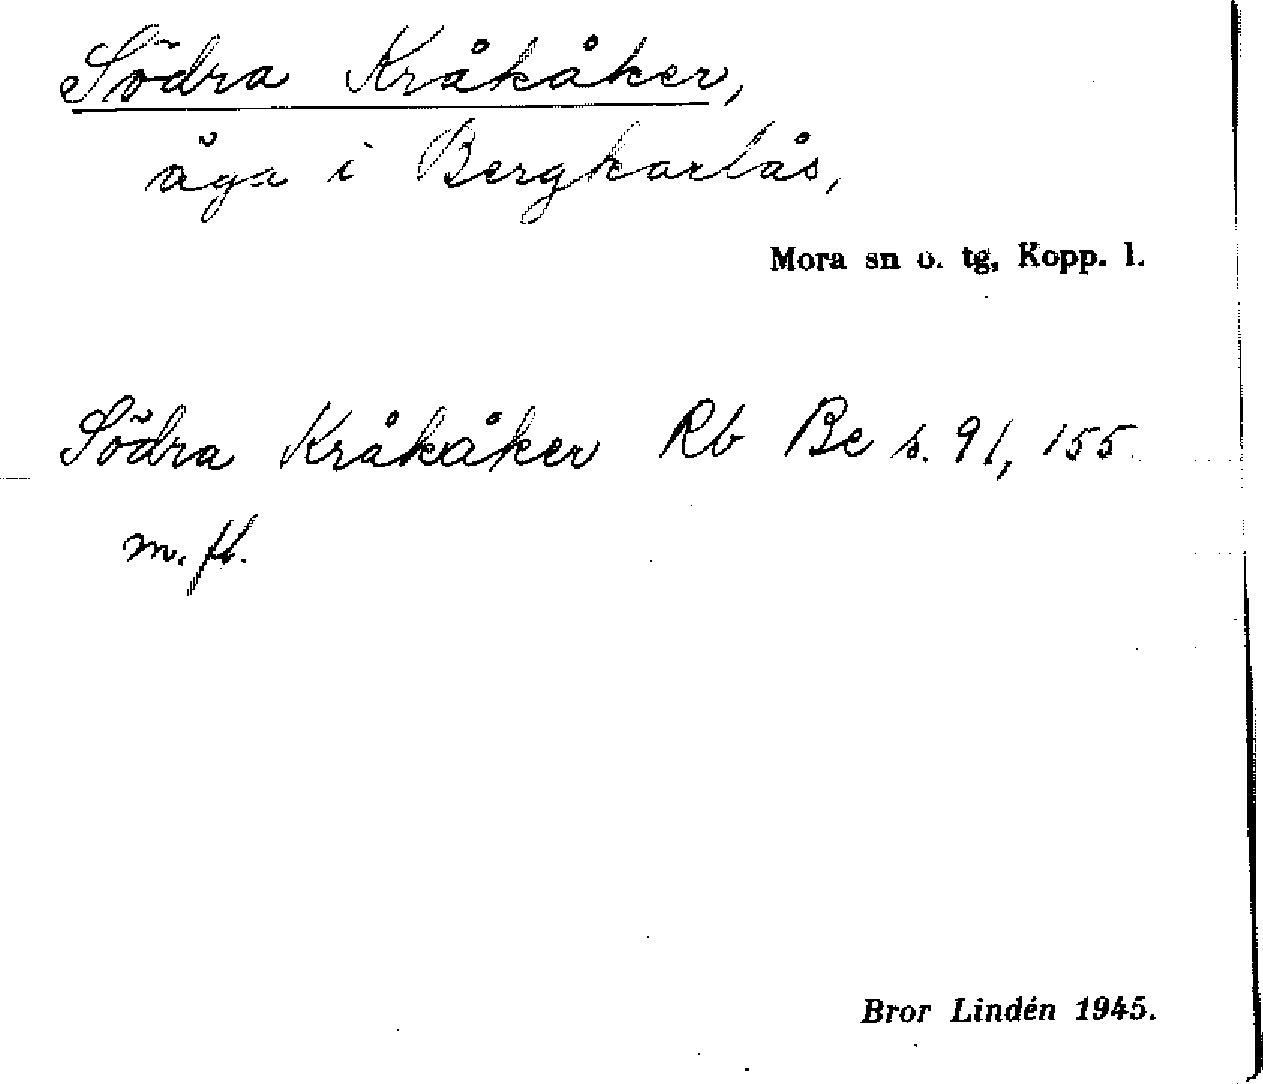 Södra Kråkåker,
äga i Bergkarlås,
Mora sn o. tg, Kopp. l.
Södra Kråkåker Rb Be s. 91, 155
m. fl.
Bror Lindén 1945.